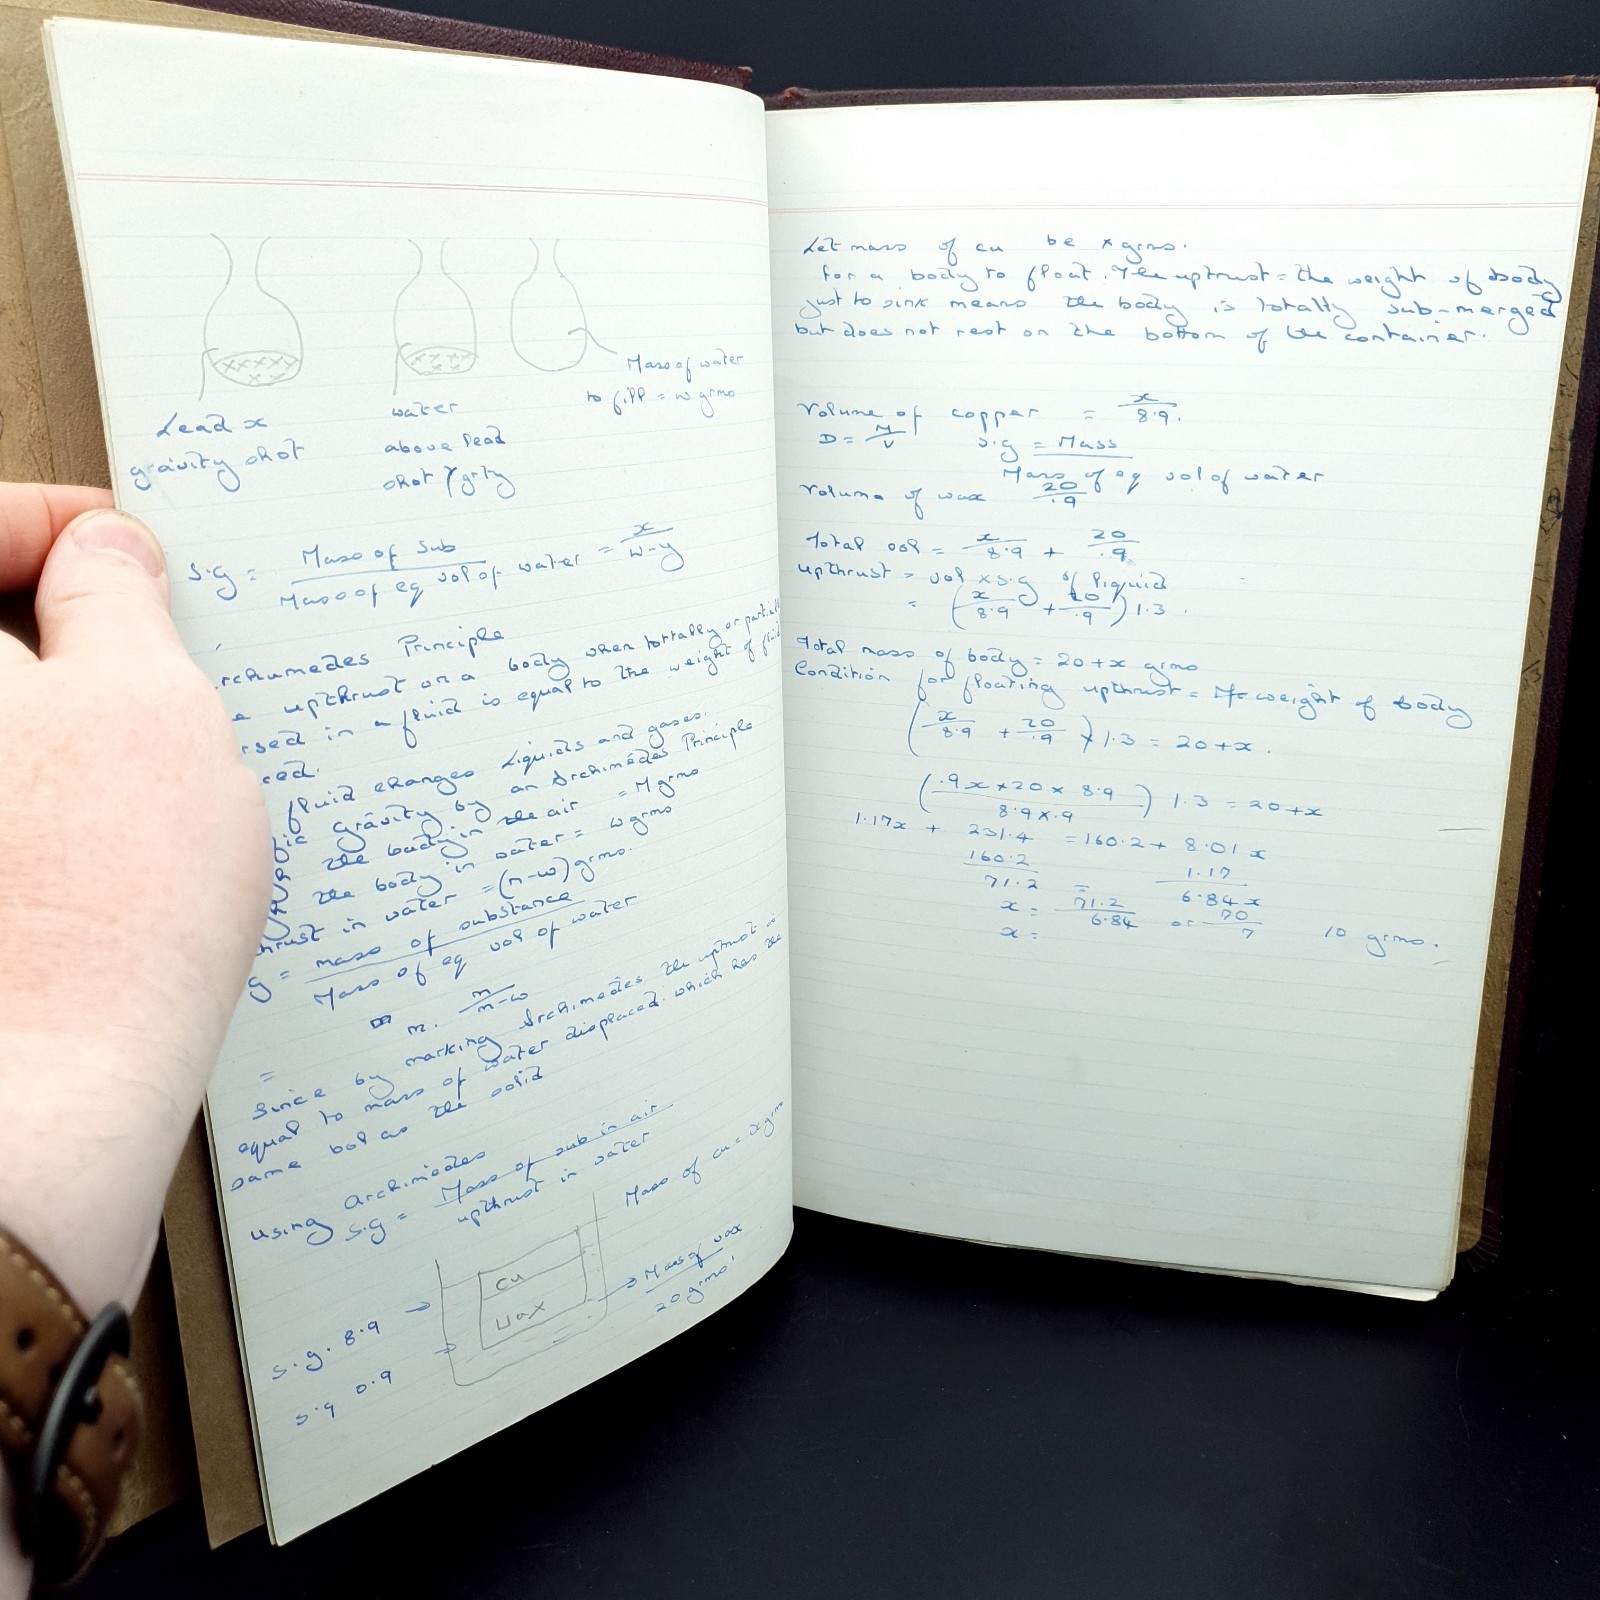 Lead x
gravity shot
water
above lead
shot y grty
Mass of water
to fill = w grms
S.g = Mass of Sub / Mass of eq vol of water = x / w-y
rchumedes Principle
e upthrust on a body when tottally or partiall
rsed in a fluid is equal to the weight of fluid
ced.
fluid changes Liquids and gases.
ic gravity by an Archimedes Principle
the body in the air = M grms
the body in water = w grms
hrust in water = (m-w) grms.
g = mass of substance / Mass of eq vol of water
m. m / m-w
=
Since by marking Archimedes the upthrust is
equal to mass of water displaced. which has the
same vol as the solid
using archimedes
S.g = Mass of sub in air / upthrust in water
Mass of cu = x grms
cu
wax
Mass of wax
20 grms.
S.g. 8.9
S.g 0.9
Let mass of cu be x grms.
for a body to float. The upthrust = the weight of body
just to sink means the body is totally sub-merged
but does not rest on the bottom of the container.
Volume of copper = x / 8.9.
D = M / V S.g = Mass / Mass of eq vol of water
Volume of wax 20 / .9
Total vol = x / 8.9 + 20 / .9
upthrust = vol x s.g of liquid
= (x / 8.9 + 20 / .9) 1.3.
Total mass of body = 20+x grms
Condition for floating upthrust = weight of body
(x / 8.9 + 20 / .9) 1.3 = 20+x.
(.9x + 20 x 8.9 / 8.9 x .9) 1.3 = 20+x
1.17x + 231.4 = 160.2 + 8.01x
160.2 1.17
71.2 = 6.84x
x = 71.2 / 6.84 or 70 / 7 10 grms.
x =